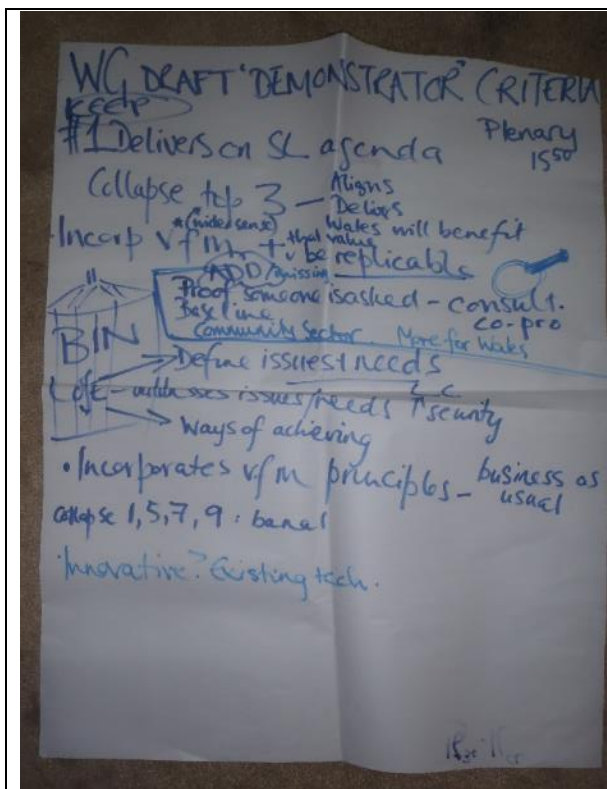 WG DRAFT 'DEMONSTRATOR' CRITERIA
KEEP
Plenary
15 50
#1 Delivers on SL agenda
Collapse top 3 - Aligns
- Delivers
Wales will benefit
*(wider sense)
• Incorp vfm + that value
be replicable
ADD/missing
Proof someone is asked - consult.
co-pro
Baseline
Community Sector. More for Wales
BIN
Define issues + needs
addresses issues/needs ↑ security
Ways of achieving
• Incorporates vfm principles - business as
usual
collapse 1, 5, 7, 9 : banal
• Innovative? Existing tech.